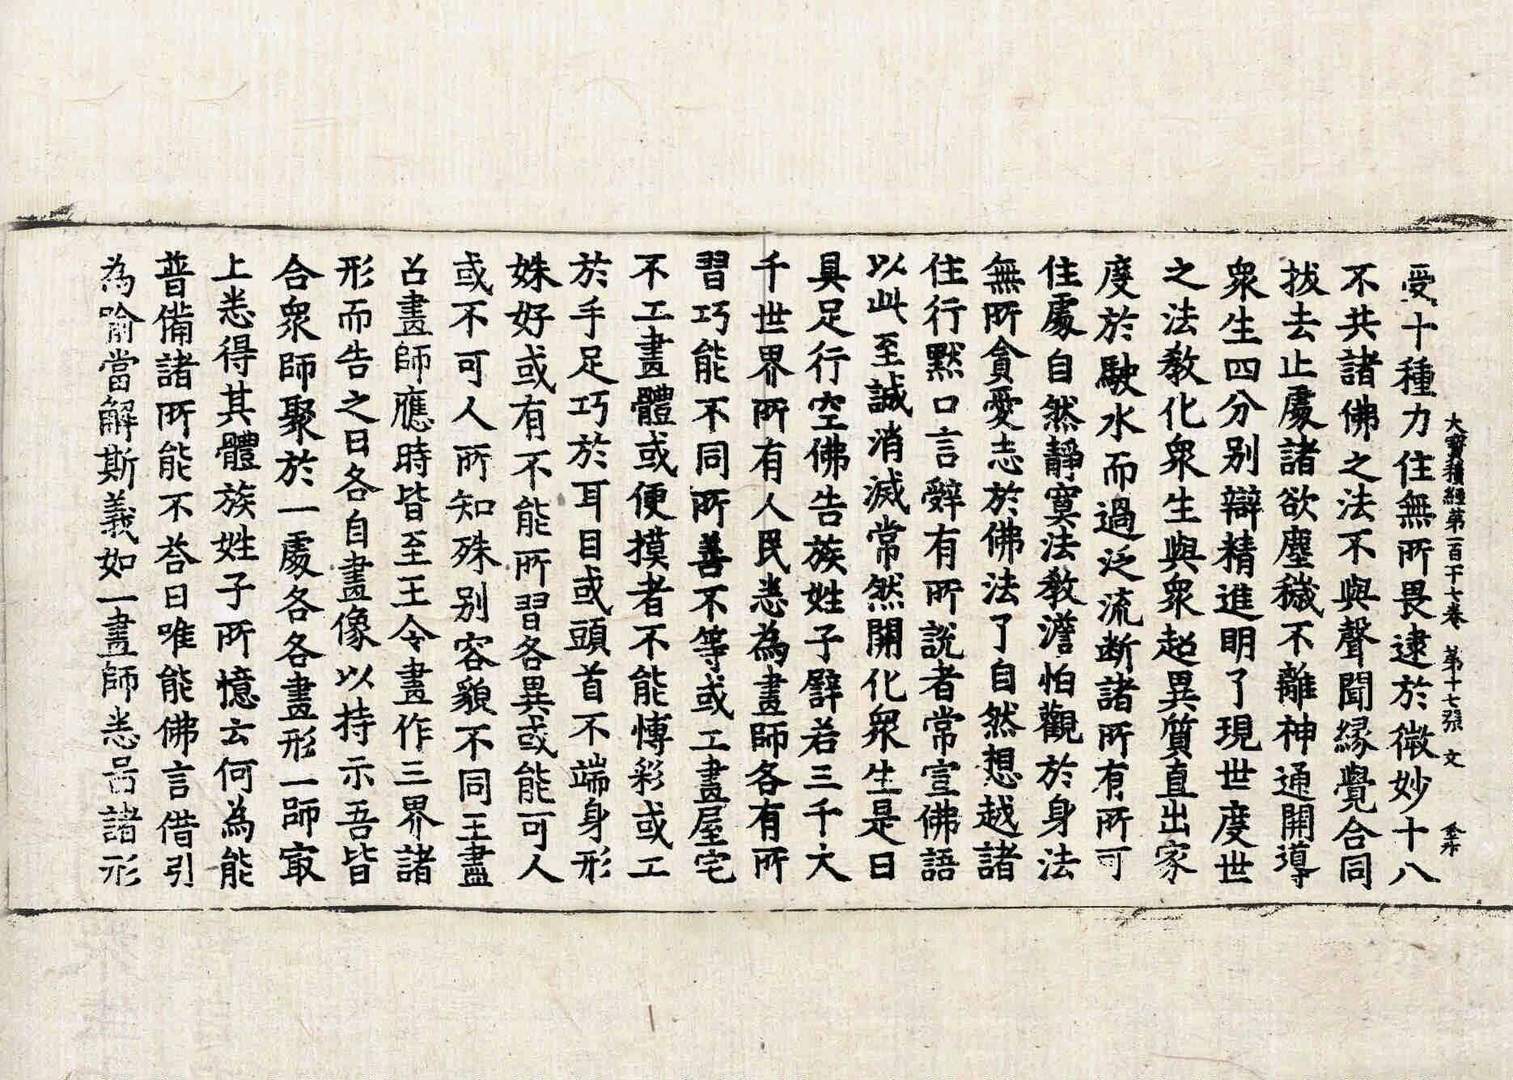 大寶積經第一百十七卷 第十七張 文
受十種力住無所畏逮於微妙十八
不共諸佛之法不與聲聞緣覺合同
拔去止處諸欲塵穢不離神通開導
衆生四分别辯精進明了現世度世
之法教化衆生與衆超異質直出家
度於駛水而過泛流断諸所有所可
住處自然靜寞法教澹怕觀於身法
無所貪愛志於佛法了自然想越諸
住行默口言辭有所説者常宣佛語
以此至誠消滅常然開化衆生是曰
具足行空佛告族姓子譬若三千大
千世界所有人民悉為畫師各有所
習巧能不同所善不等或工畫屋宅
不工畫體或便摸者不能愽彩或工
於手足巧於耳目或頭首不端身形
姝好或有不能所習各異或能可人
或不可人所知殊别容貌不同王盡
召畫師應時皆至王令畫作三界諸
形而告之曰各自畫像以持示吾皆
合衆師聚於一處各各畫形一師㝡
上悉得其體族姓子所憶云何為能
普備諸所能不荅曰唯能佛言借引
為喻當解斯義如一畫師悉啚諸形